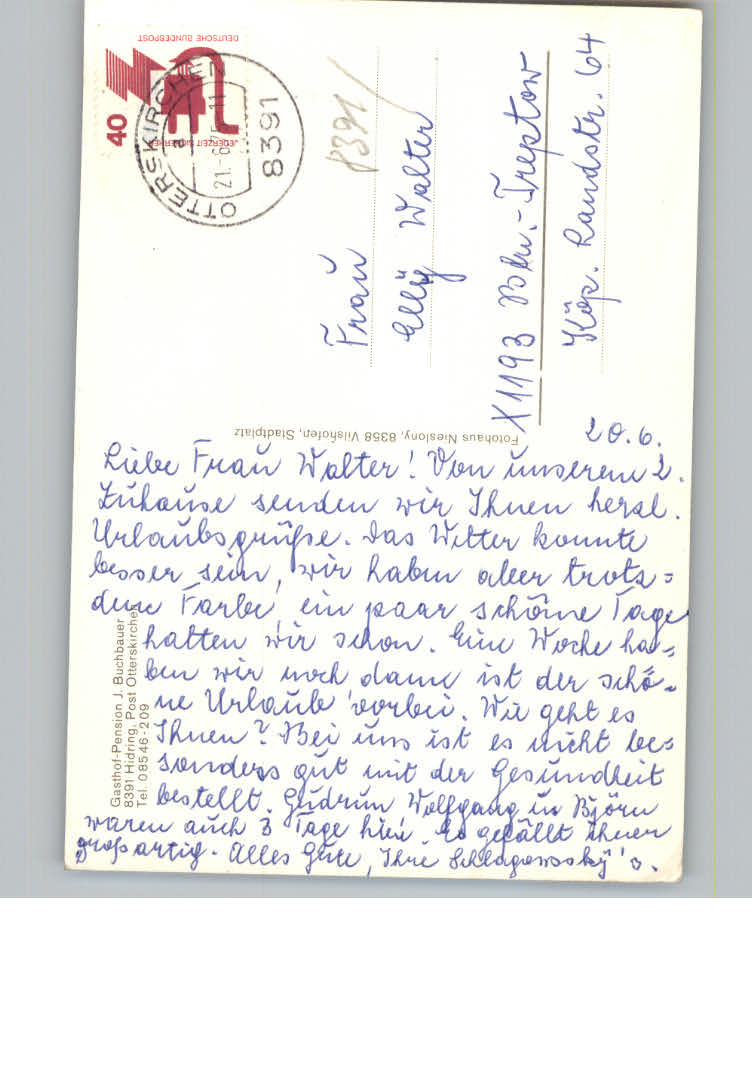 DEUTSCHE BUNDESPOST
JEDERZEIT SICHERHEIT
40
OTTERSKIRCHEN
a
21.-6.75-11
8391
8391
Frau
Elly Walter
X1193 Bln.-Treptow
Köp. Landstr. 64
Fotohaus Nieslony, 8358 Vilshofen, Stadtplatz
Gasthof-Pension J. Buchbauer
8391 Hidring, Post Otterskirchen
Tel. 08546-209
20.6.
Liebe Frau Walter! Von unserem 2.
Zuhause senden wir Ihnen herzl.
Urlaubsgrüße. Das Wetter konnte
besser sein, wir haben aber trotz=
dem Farbe, ein paar schöne Tage
hatten wir schon. Eine Woche ha=
ben wir noch dann ist der schö=
ne Urlaub vorbei. Wie geht es
Ihnen? Bei uns ist es nicht be=
sonders gut mit der Gesundheit
bestellt. Gudrun Wolfgang u Björn
waren auch 3 Tage hier. Es gefällt ihnen
großartig. Alles Gute, Ihre Schlagowsky's.